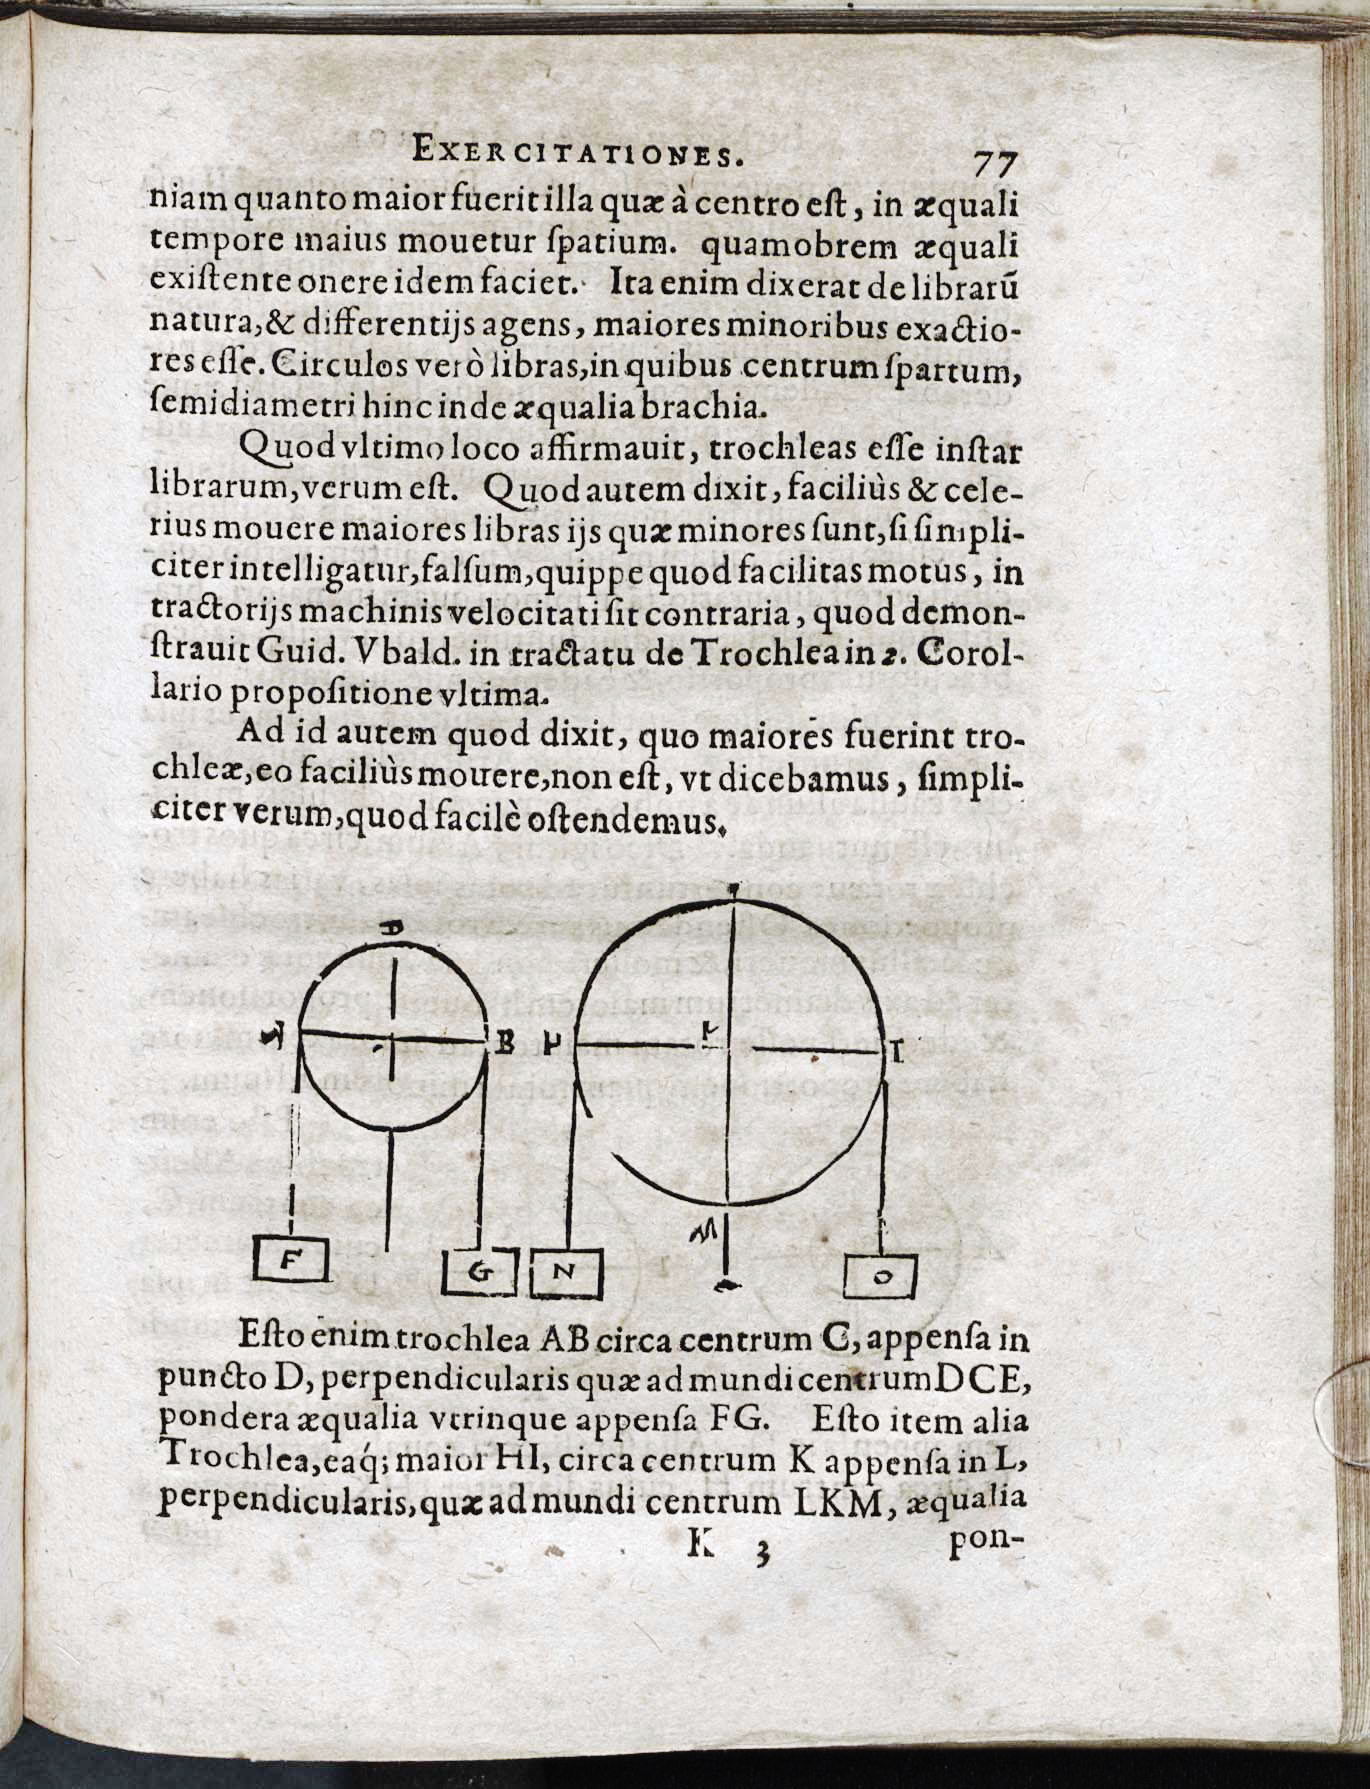 EXERCITATIONES. 77
niam quanto maior fuerit illa quæ à centro eſt, in æquali
tempore maius mouetur ſpatium. quamobrem æquali
exiſtente onere idem faciet. Ita enim dixerat de librarū
natura,& differentijs agens, maiores minoribus exactio-
res eſſe. Circulos verò libras,in quibus centrum ſpartum,
ſemidiametri hinc inde æqualia brachia.
Quod vltimo loco affirmauit, trochleas eſſe inſtar
librarum,verum eſt. Quod autem dixit, faciliùs & cele-
rius mouere maiores libras ijs quæ minores ſunt,ſi ſimpli-
citer intelligatur,falſum,quippe quod facilitas motus, in
tractorijs machinis velocitati ſit contraria, quod demon-
ſtrauit Guid. Vbald. in tractatu de Trochlea in 2. Corol-
lario propoſitione vltima.
Ad id autem quod dixit, quo maiores fuerint tro-
chleæ,eo faciliùs mouere,non eſt, vt dicebamus, ſimpli-
citer verum,quod facilè oſtendemus.
D
A B H K I
M
F G N O
Eſto enim trochlea AB circa centrum C, appenſa in
puncto D, perpendicularis quæ ad mundi centrum DCE,
pondera æqualia vtrinque appenſa FG. Eſto item alia
Trochlea,eaq́; maior HI, circa centrum K appenſa in L,
perpendicularis,quæ ad mundi centrum LKM, æqualia
K 3 pon-